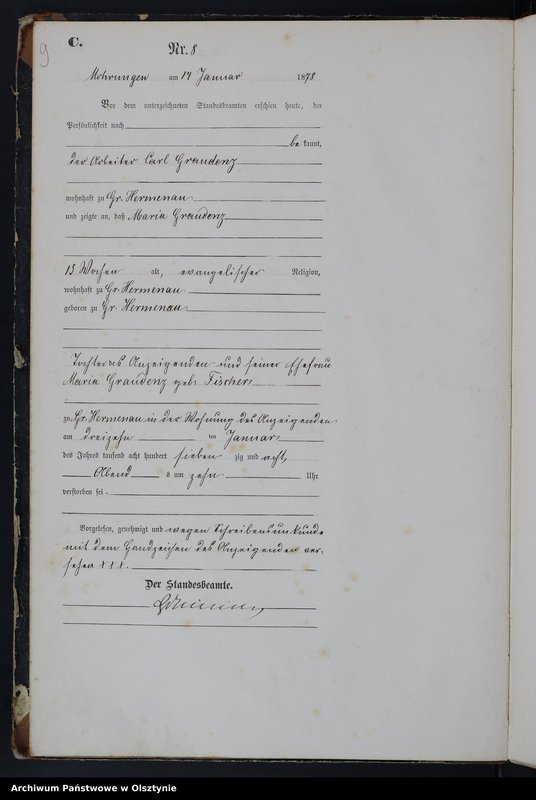 9
C.
Nr. 8
Mohrungen am 14 Januar 1878
Vor dem unterzeichneten Standesbeamten erschien heute, der
Persönlichkeit nach
be kannt,
der Arbeiter Carl Graudenz
wohnhaft zu Gr. Hermenau
und zeigte an, daß Maria Graudenz
15 Wochen alt, evangelischer Religion,
wohnhaft zu Gr. Hermenau
geboren zu Gr. Hermenau
Tochter des Anzeigenden und seiner Ehefrau
Maria Graudenz geb: Fischer
zu Gr. Hermenau in der Wohnung des Anzeigenden
am dreizehn ten Januar
des Jahres tausend acht hundert sieben zig und acht,
Abend s um zehn Uhr
verstorben sei.
Vorgelesen, genehmigt und wegen Schreibensunkunde
mit dem Handzeichen des Anzeigenden ver-
sehen XXX.
Der Standesbeamte.
Archiwum Państwowe w Olsztynie